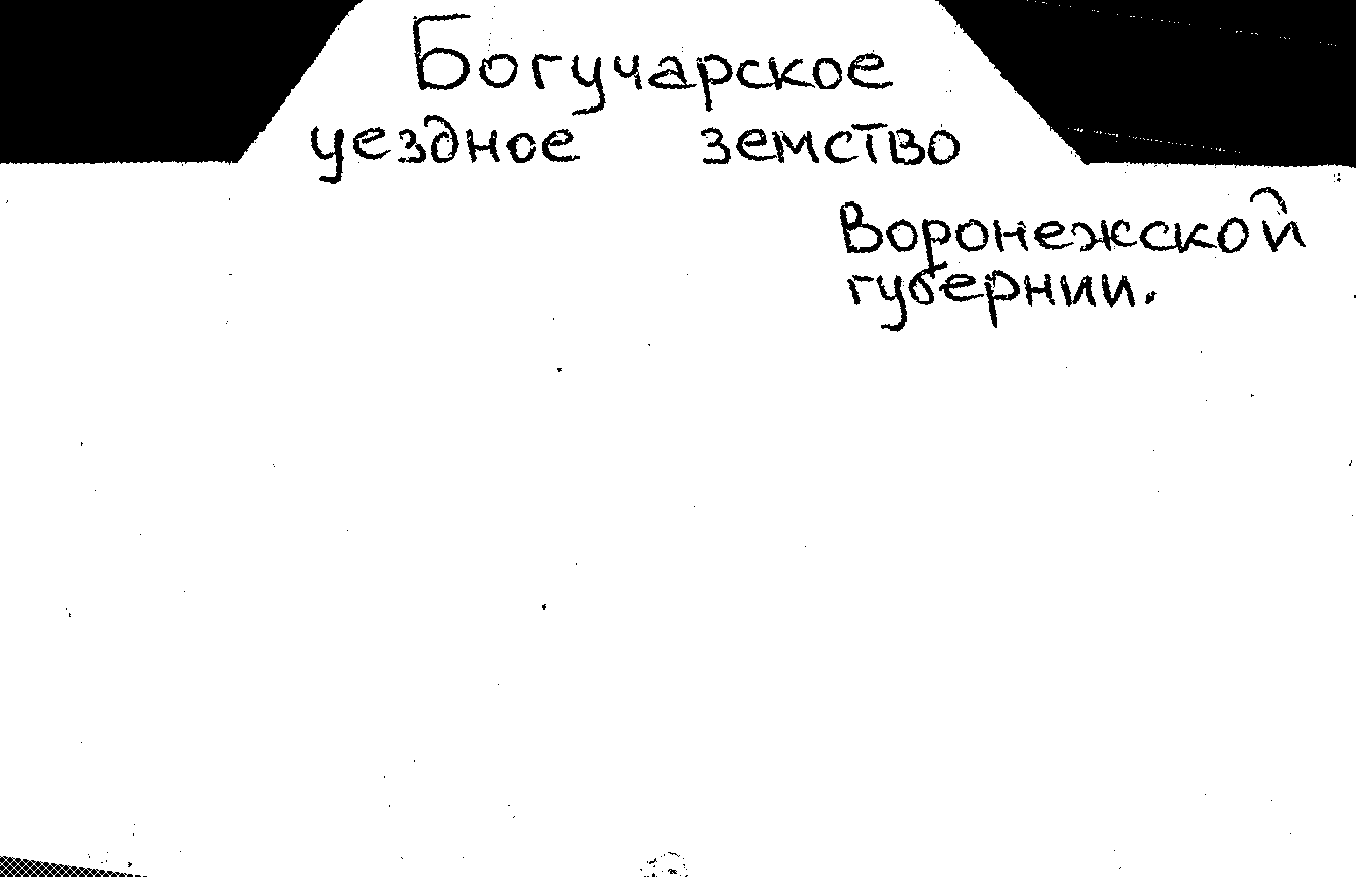 Богучарское
уездное земство
Воронежской
губернии.